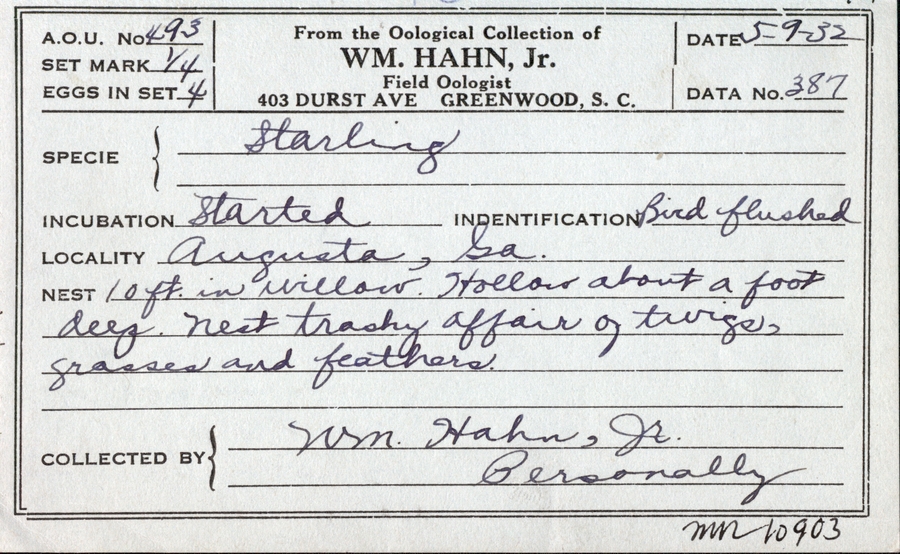 A.O.U. No. 493
SET MARK 1/4
EGGS IN SET 4
From the Oological Collection of
WM. HAHN, Jr.
Field Oologist
403 DURST AVE GREENWOOD, S. C.
DATE 5-9-32
DATA No. 387
SPECIE Starling
INCUBATION Started INDENTIFICATION Bird flushed
LOCALITY Augusta, Ga.
NEST 10 ft. in willow. Hollow about a foot
deep. Nest trashy affair of twigs,
grasses and feathers.
COLLECTED BY Wm. Hahn, Jr.
Personally
10903